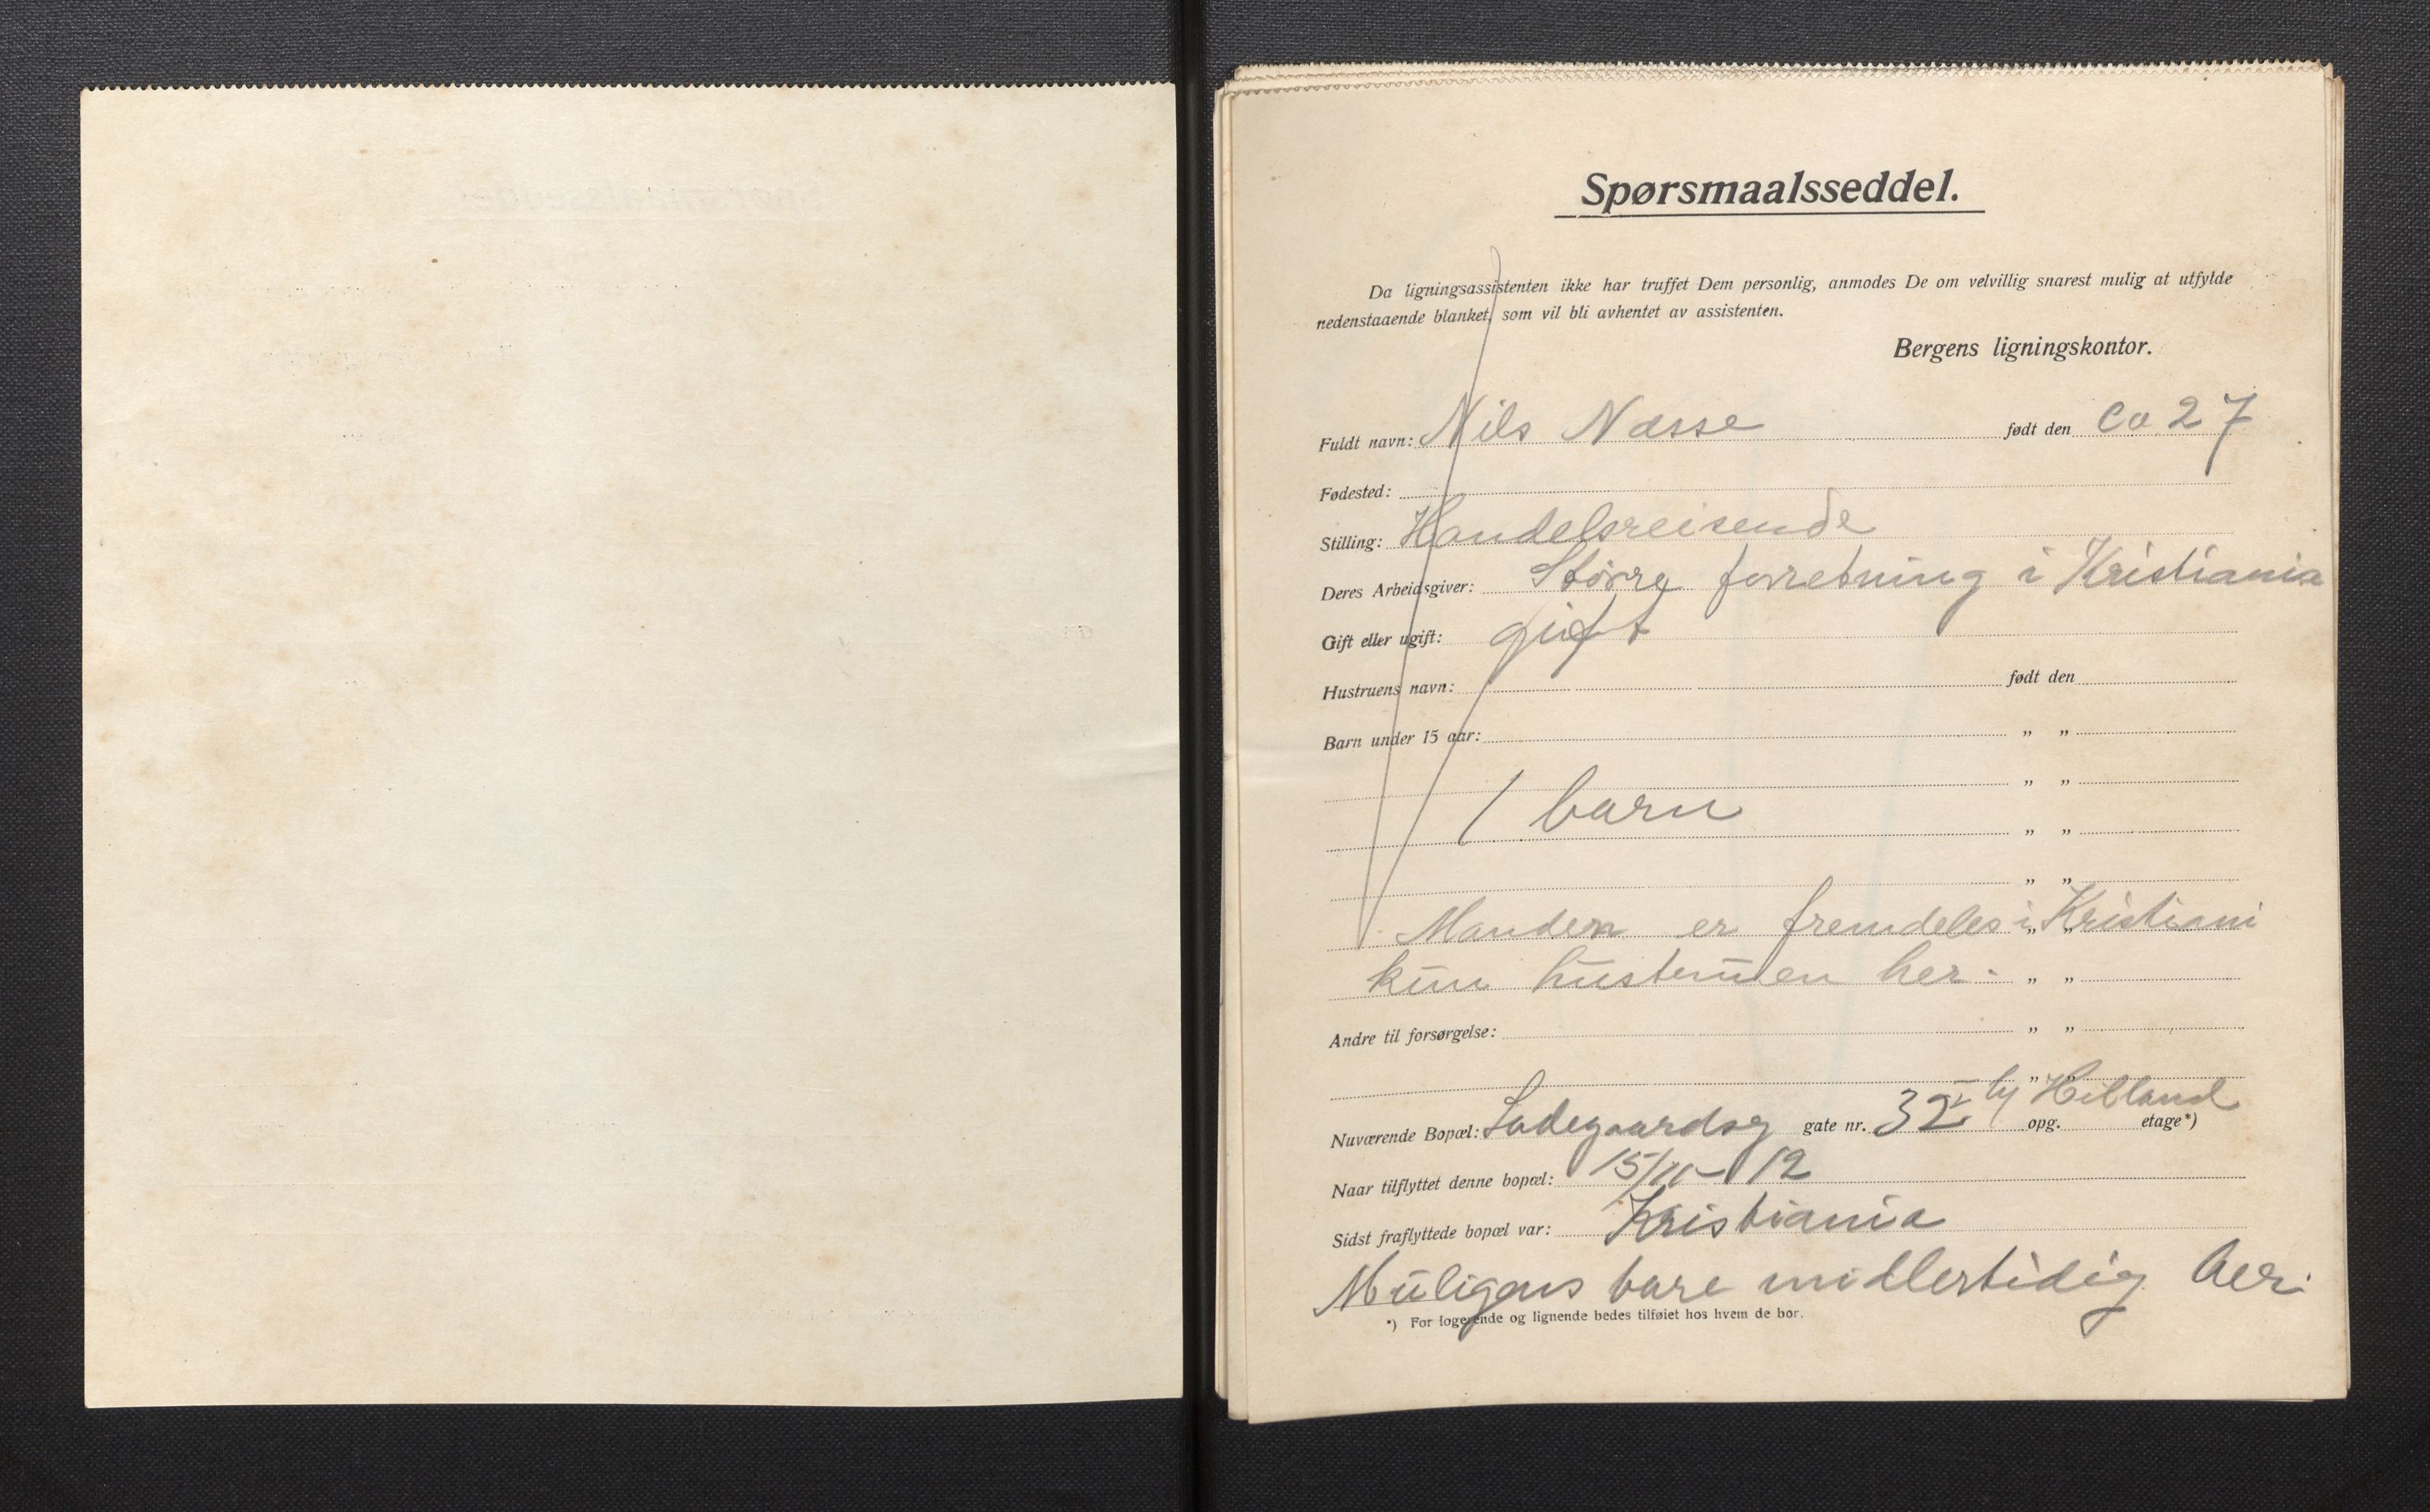 Spørsmaalsseddel.
Da ligningsassistenten ikke har truffet Dem personlig, anmodes De om velvillig snarest mulig at utfylde
nedenstaaende blanket, som vil bli avhentet av assistenten.
Bergens ligningskontor.
Fuldt navn: Nils Næsse født den ca 27
Fødested:
Stilling: Handelsreisende
Deres Arbeidsgiver: Større forretning i Kristiania
Gift eller ugift: gift
Hustruens navn: født den
Barn under 15 aar: „ „
„ „
1 barn „ „
„ „
Manden er fremdeles i Kristiani „ „
kun hustruen her. „ „
Andre til forsørgelse: „ „
„ „
Nuværende Bopæl: Ladegaardsg gate nr. 32 I by Hilland opg. etage*)
Naar tilflyttet denne bopæl: 15/11-12
Sidst fraflyttede bopæl var: Kristiania
Muligens bare midlertidig her.
*) For logerende og lignende bedes tilføiet hos hvem de bor.